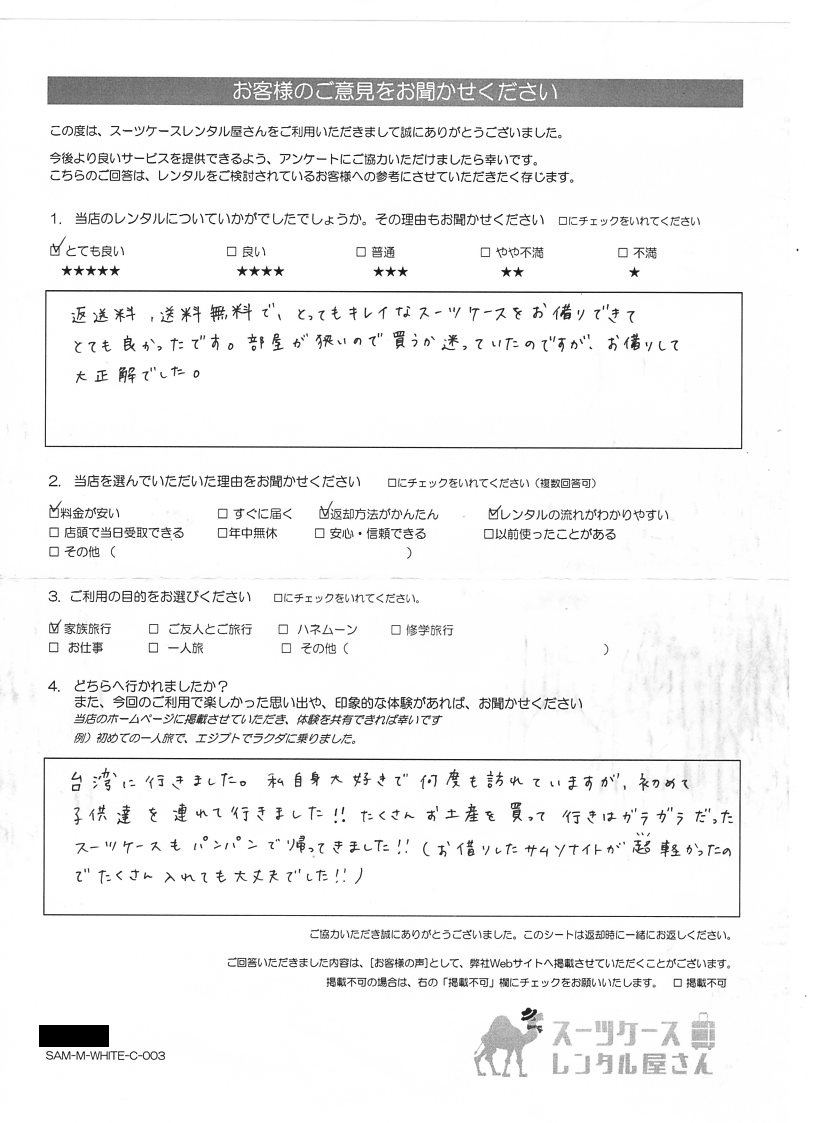 お客様のご意見をお聞かせください
この度は、スーツケースレンタル屋さんをご利用いただきまして誠にありがとうございました。
今後より良いサービスを提供できるよう、アンケートにご協力いただけましたら幸いです。
こちらのご回答は、レンタルをご検討されているお客様への参考にさせていただきたく存じます。
1. 当店のレンタルについていかがでしたでしょうか。その理由もお聞かせください □にチェックをいれてください
☑ とても良い □ 良い □ 普通 □ やや不満 □ 不満
★★★★★ ★★★★ ★★★ ★★ ★
返送料,送料無料で、とってもキレイなスーツケースをお借りできて
とても良かったです。部屋が狭いので買うか迷っていたのですが、お借りして
大正解でした。
2. 当店を選んでいただいた理由をお聞かせください □にチェックをいれてください(複数回答可)
☑料金が安い □ すぐに届く ☑返却方法がかんたん ☑レンタルの流れがわかりやすい
□ 店頭で当日受取できる □年中無休 □ 安心・信頼できる □以前使ったことがある
□ その他 ( )
3. ご利用の目的をお選びください □にチェックをいれてください。
☑ 家族旅行 □ ご友人とご旅行 □ ハネムーン □ 修学旅行
□ お仕事 □ 一人旅 □ その他 ( )
4. どちらへ行かれましたか?
また、今回のご利用で楽しかった思い出や、印象的な体験があれば、お聞かせください
当店のホームページに掲載させていただき、体験を共有できれば幸いです
例)初めての一人旅で、エジプトでラクダに乗りました。
台湾に行きました。私自身大好きで何度も訪れていますが、初めて
子供達を連れて行きました!! たくさんお土産を買って 行きはガラガラだった
スーツケースもパンパンで帰ってきました!! (お借りしたサムソナイトが超軽かったの
でたくさん入れても大丈夫でした!!)
ご協力いただき誠にありがとうございました。このシートは返却時に一緒にお返しください。
ご回答いただきました内容は、[お客様の声]として、弊社Webサイトへ掲載させていただくことがございます。
掲載不可の場合は、右の「掲載不可」欄にチェックをお願いいたします。 □ 掲載不可
SAM-M-WHITE-C-003
スーツケース
レンタル屋さん